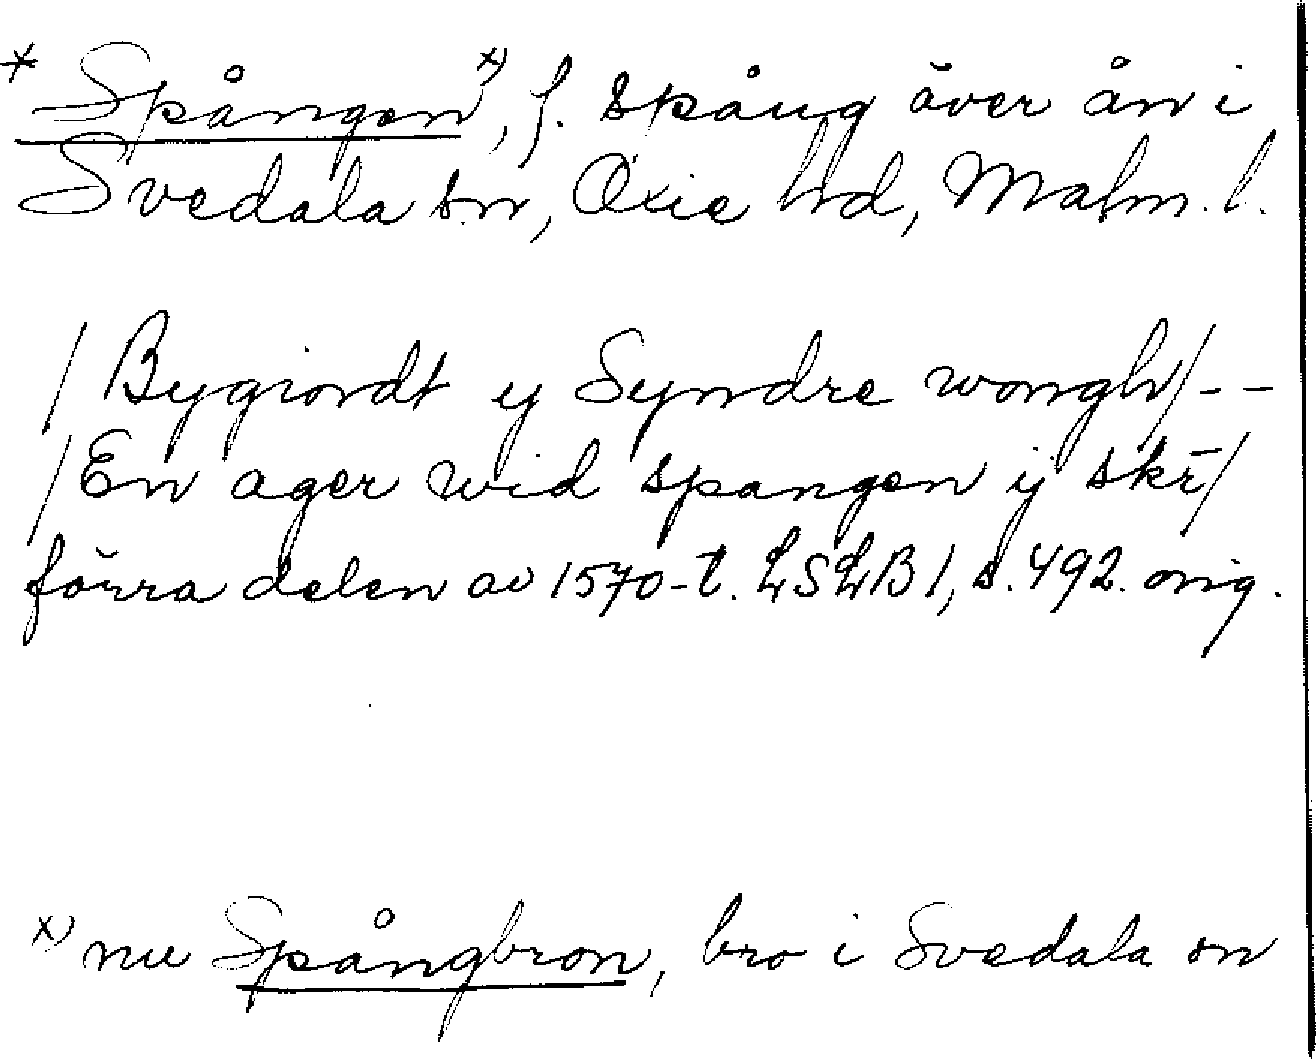 * Spången x), f. spång över ån i
Svedala sn, Oxie hd, Malm. l.
/Bygiordt y Syndre wongh/--
/En ager wid spangen ij skr̄/
förra delen av 1570-t. LSLB1, s. 492. orig.
x) nu Spångbron, bro i Svedala sn